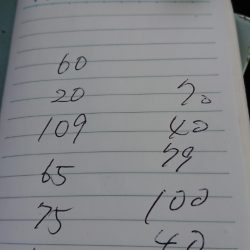 60
20
109
65
75
70
40
79
100
40